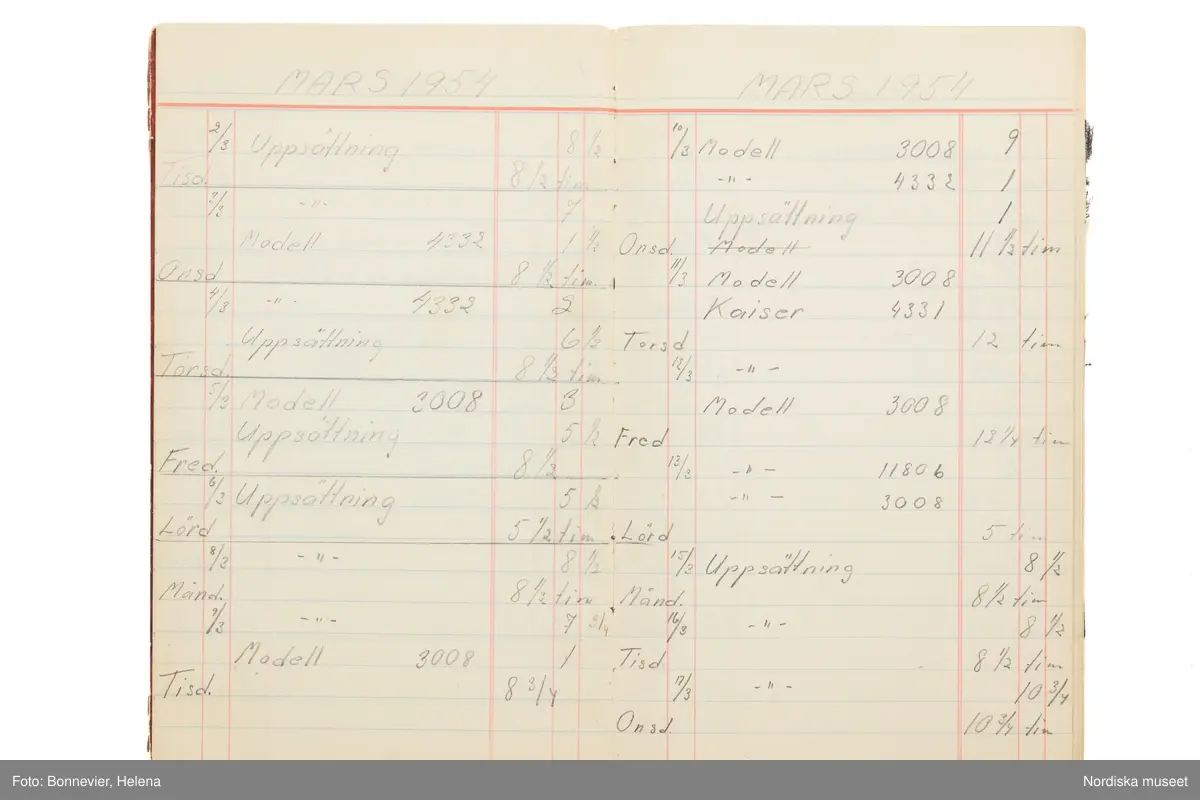 MARS 1954
2/3 Uppsättning 8 1/2
Tisd. 8 1/2 tim.
3/3 -"- 7
Modell 4332 1 1/2
Onsd 8 1/2 tim.
4/3 -"- 4332 2
Uppsättning 6 1/2
Torsd. 8 1/2 tim.
5/3 Modell 3008 3
Uppsättning 5 1/2
Fred. 8 1/2
6/3 Uppsättning 5 1/2
Lörd 5 1/2 tim.
8/3 -"- 8 1/2
Månd. 8 1/2 tim
9/3 -"- 7 3/4
Modell 3008 1
Tisd. 8 3/4
MARS 1954
10/3 Modell 3008 9
-"- 4332 1
Uppsättning 1
Onsd. Modell 11 1/2 tim
11/3 Modell 3008
Kaiser 4331
Torsd 12 tim
12/3 -"-
Modell 3008
Fred 12 1/4 tim
13/3 -"- 11806
-"- 3008
Lörd 5 tim
15/3 Uppsättning 8 1/2
Månd. 8 1/2 tim
16/3 -"- 8 1/2
Tisd 8 1/2 tim
17/3 -"- 10 3/4
Onsd. 10 3/4 tim
Foto: Bonnevier, Helena
Nordiska museet